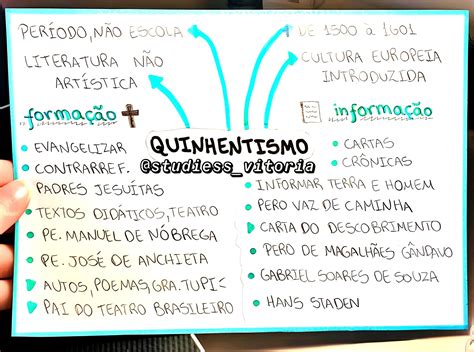 PERÍODO, NÃO ESCOLA
LITERATURA NÃO
ARTÍSTICA
DE 1500 À 1601
CULTURA EUROPEIA
INTRODUZIDA
formação
informação
QUINHENTISMO
@studiess_vitoria
• EVANGELIZAR
• CONTRARREF.
PADRES JESUÍTAS
• TEXTOS DIDÁTICOS, TEATRO
• PE. MANUEL DE NÓBREGA
• PE. JOSÉ DE ANCHIETA
AUTOS, POEMAS, GRA. TUPI
PAI DO TEATRO BRASILEIRO
• CARTAS
• CRÔNICAS
INFORMAR TERRA E HOMEM
• PERO VAZ DE CAMINHA
CARTA DO DESCOBRIMENTO
• PERO DE MAGALHÃES GÂNDAVO
• GABRIEL SOARES DE SOUZA
• HANS STADEN